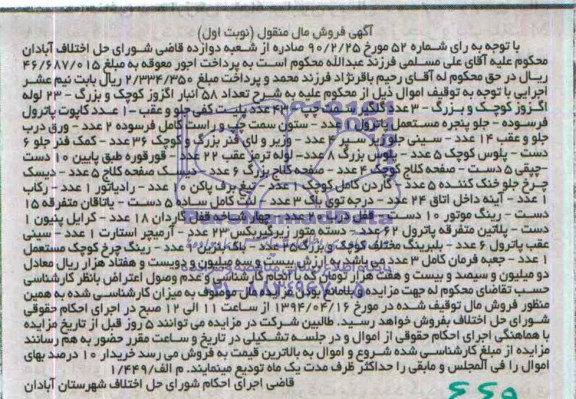 آگهی فروش مال منقول (نوبت اول)
با توجه به رای شماره ۵۲ مورخ ۹۰/۲/۲۵ صادره از شعبه دوازده قاضی شورای حل اختلاف آبادان
محکوم علیه آقای علی مسلمی فرزند عبدالله محکوم است به پرداخت اجور معوقه به مبلغ ۴۶/۶۸۷/۰۱۵
ریال در حق محکوم له آقای رحیم باقرنژاد فرزند محمد و پرداخت مبلغ ۲/۳۳۴/۳۵۰ ریال بابت نیم عشر
اجرایی با توجه به توقیف اموال ذیل از محکوم علیه به شرح تعداد ۵۸ انبار اگزوز کوچک و بزرگ – ۲۳ لوله
اگزوز کوچک و بزرگ – ۳ عدد گلگیر سمت چپ – ۴۳ عدد بلیت کفی جلو و عقب – ۱ عدد کاپوت پاترول
فرسوده – جلو پنجره مستعمل پاترول ۱ عدد – ستون سمت چپ و راست کامل فرسوده ۲ عدد – ورق درب
جلو و عقب ۱۴ عدد – سینی جلو زیر سپر ۷ عدد – وزیر و لای فنر بزرگ و کوچک ۳۶ عدد – کمک فنر جلو ۶
دست – پلوس کوچک ۵ عدد – پلوس بزرگ ۸ عدد – لوله ترمز عقب ۲۲ عدد – قورقوره طبق پایین ۱۰ دست
– چپقی ۵ دست – صفحه کلاج کوچک ۴ عدد – صفحه کلاج بزرگ ۶ عدد – دیسک صفحه کلاج ۵ عدد – دیسک
چرخ جلو خنک کننده ۵ عدد – گاردن کامل کوچک ۱ عدد – تیغ برف پاکن ۱۰ عدد – رادیاتور ۱ عدد – رکاب
۱ عدد – آینه داخل اتاق ۲۴ عدد – درجه توی باک ۳ عدد – لنت کامل ساده ۵ دست – یاتاقان متفرقه ۱۵
دست – رینگ موتور ۱۰ دست – قفل درب ۲۰ عدد – چهار شاخه قفل گاردان ۱۸ عدد – کرایل پنیون ۱
دست – پلاتین متفرقه پاترول ۶۲ عدد – دسته متور زیرگیربکس ۲۳ عدد – آرمیچر استارت ۱ عدد – سینی
عقب پاترول ۶ عدد – بلبرینگ مختلف کوچک و بزرگ ۲۵ عدد – باک بنزین ۱ عدد – رینگ چرخ کوچک مستعمل
۱ عدد – جعبه فرمان کامل ۳ عدد می باشد به ارزش بیست و سه میلیون و دویست و هفتاد هزار ریال معادل
دو میلیون و سیصد و بیست و هفت هزار تومان که با انجام کارشناسی و عدم وصول اعتراض بانظر کارشناسی
حسب تقاضای محکوم له جهت مزایده و بلامانع بودن مزایده مال موصوف به میزان کارشناسی شده به همین
منظور فروش مال توقیف شده در مورخ ۱۳۹۴/۰۴/۱۶ از ساعت ۱۱ الی ۱۲ صبح در اجرای احکام حقوقی
شورای حل اختلاف بفروش خواهد رسید. طالبین شرکت در مزایده می توانند ۵ روز قبل از تاریخ مزایده
با هماهنگی اجرای احکام حقوقی از اموال و در جلسه تشکیلی در تاریخ و ساعت مقرر حضور به هم رسانند
مزایده از مبلغ کارشناسی شده شروع و اموال به بالاترین قیمت به فروش می رسد خریدار ۱۰ درصد بهای
اموال را فی المجلس و مابقی را حداکثر ظرف مدت یک ماه تودیع مینمایند. م الف/۱/۴۴۹
قاضی اجرای احکام شورای حل اختلاف شهرستان آبادان